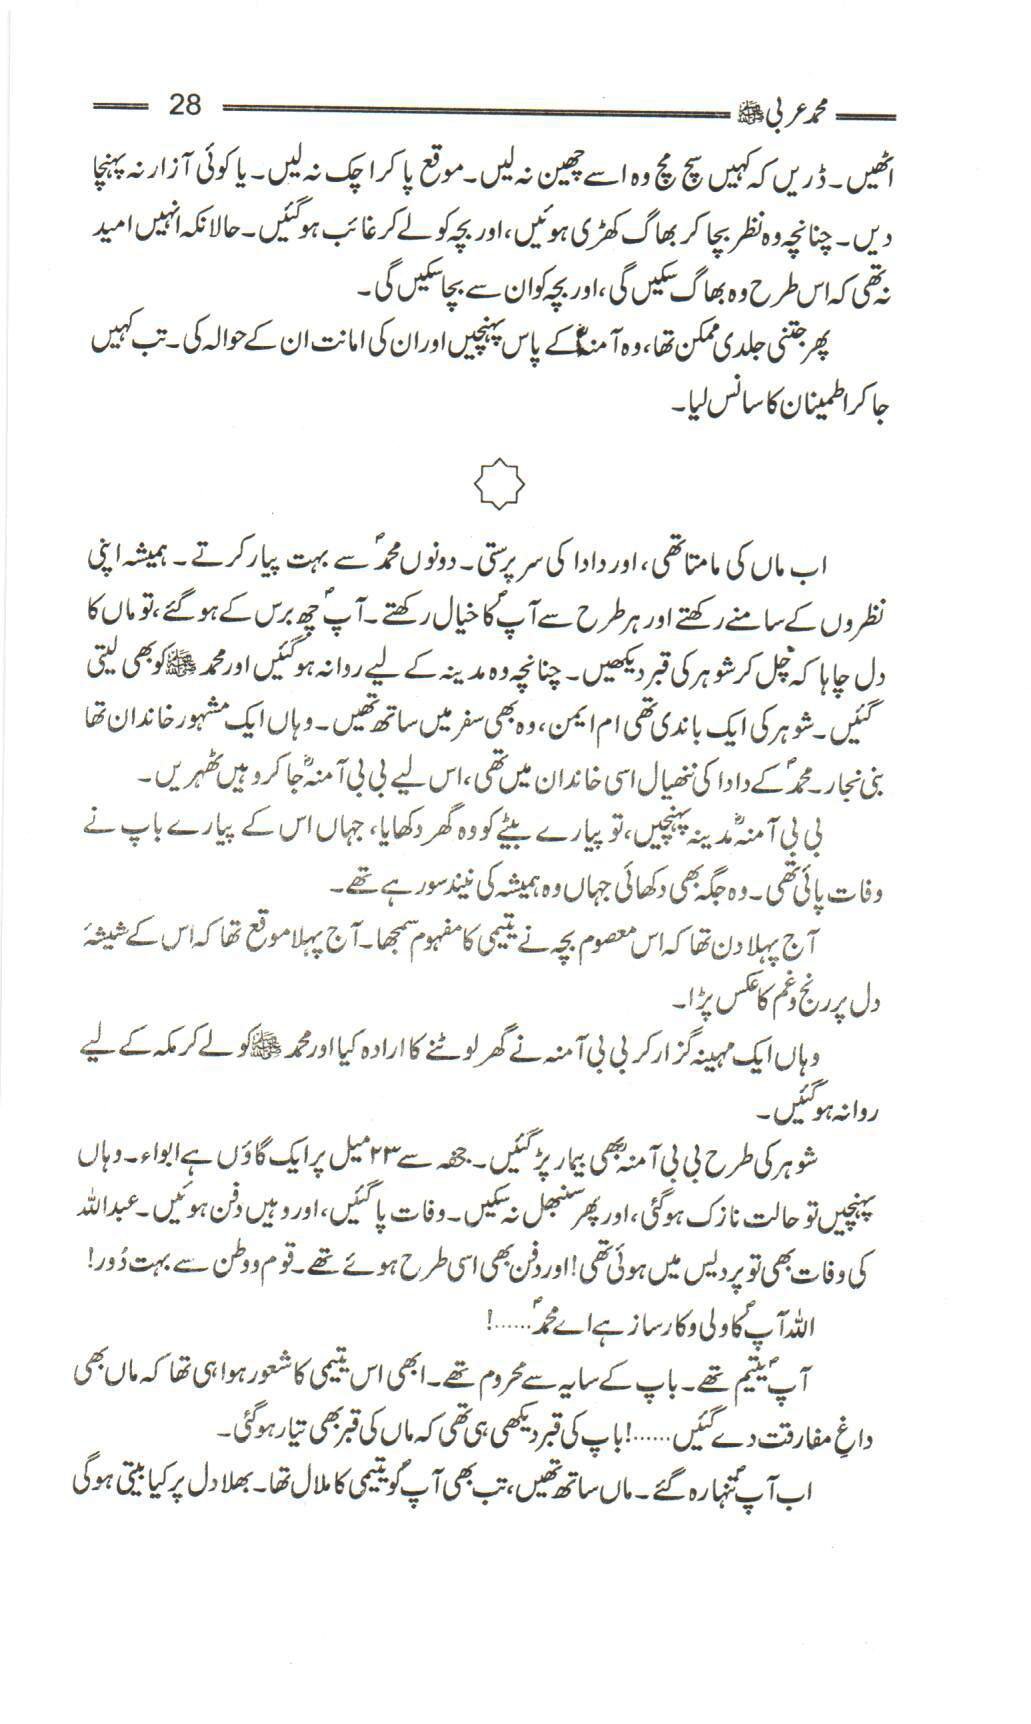 محمد عربی ﷺ 28
اٹھیں۔ ڈریں کہ کہیں سچ مچ وہ اسے چھین نہ لیں۔ موقع پا کر اچک نہ لیں۔ یا کوئی آزار نہ پہنچا
دیں۔ چنانچہ وہ نظر بچا کر بھاگ کھڑی ہوئیں، اور بچہ کو لے کر غائب ہوگئیں۔ حالانکہ انہیں امید
نہ تھی کہ اس طرح وہ بھاگ سکیں گی، اور بچہ کو ان سے بچا سکیں گی۔
پھر جتنی جلدی ممکن تھا، وہ آمنہؓ کے پاس پہنچیں اور ان کی امانت ان کے حوالہ کی۔ تب کہیں
جا کر اطمینان کا سانس لیا۔
اب ماں کی مامتا تھی، اور دادا کی سرپرستی۔ دونوں محمدؐ سے بہت پیار کرتے۔ ہمیشہ اپنی
نظروں کے سامنے رکھتے اور ہر طرح سے آپؐ کا خیال رکھتے۔ آپؐ چھ برس کے ہو گئے، تو ماں کا
دل چاہا کہ چل کر شوہر کی قبر دیکھیں۔ چنانچہ وہ مدینہ کے لیے روانہ ہوگئیں اور محمد ﷺ کو بھی لیتی
گئیں۔ شوہر کی ایک باندی تھی ام ایمن، وہ بھی سفر میں ساتھ تھیں۔ وہاں ایک مشہور خاندان تھا
بنی نجار۔ محمدؐ کے دادا کی ننھیال اسی خاندان میں تھی، اس لیے بی بی آمنہؓ جا کر وہیں ٹھہریں۔
بی بی آمنہؓ مدینہ پہنچیں، تو پیارے بیٹے کو وہ گھر دکھایا، جہاں اس کے پیارے باپ نے
وفات پائی تھی۔ وہ جگہ بھی دکھائی جہاں وہ ہمیشہ کی نیند سو رہے تھے۔
آج پہلا دن تھا کہ اس معصوم بچہ نے یتیمی کا مفہوم سمجھا۔ آج پہلا موقع تھا کہ اس کے شیشۂ
دل پر رنج و غم کا عکس پڑا۔
وہاں ایک مہینہ گزار کر بی بی آمنہ نے گھر لوٹنے کا ارادہ کیا اور محمد ﷺ کو لے کر مکہ کے لیے
روانہ ہوگئیں۔
شوہر کی طرح بی بی آمنہؓ بھی بیمار پڑ گئیں۔ جحفہ سے ۲۳ میل پر ایک گاؤں ہے ابواء۔ وہاں
پہنچیں تو حالت نازک ہوگئی، اور پھر سنبھل نہ سکیں۔ وفات پا گئیں، اور وہیں دفن ہوئیں۔ عبداللہ
کی وفات بھی تو پردیس میں ہوئی تھی! اور دفن بھی اسی طرح ہوئے تھے۔ قوم و وطن سے بہت دُور!
اللہ آپؐ کا ولی و کارساز ہے اے محمدؐ ......!
آپؐ یتیم تھے۔ باپ کے سایہ سے محروم تھے۔ ابھی اس یتیمی کا شعور ہوا ہی تھا کہ ماں بھی
داغِ مفارقت دے گئیں ......! باپ کی قبر دیکھی ہی تھی کہ ماں کی قبر بھی تیار ہوگئی۔
اب آپؐ تنہا رہ گئے۔ ماں ساتھ تھیں، تب بھی آپؐ کو یتیمی کا ملال تھا۔ بھلا دل پر کیا بیتی ہوگی